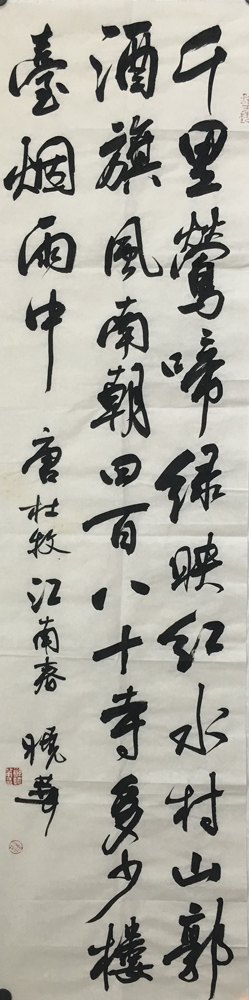 千里鶯啼绿映红水村山郭
酒旗風南朝四百八十寺多少樓
臺烟雨中
唐杜牧江南春 曉